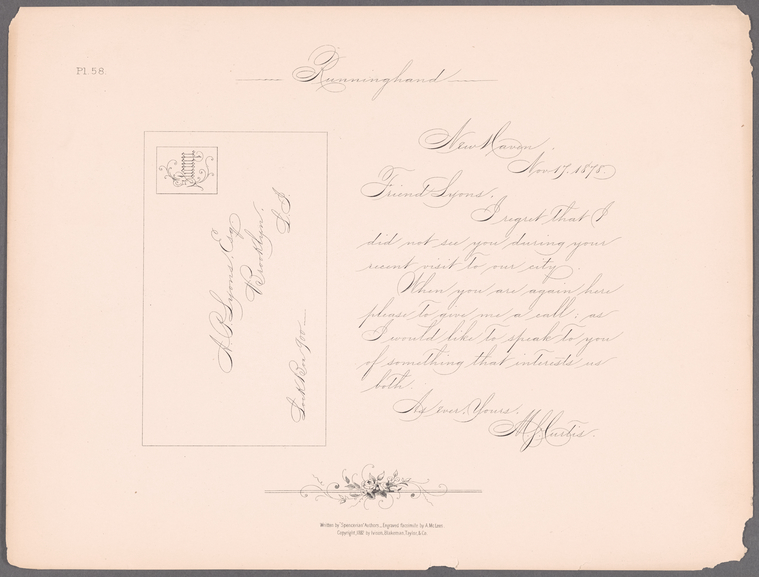 Pl. 58.
Runninghand
New Haven.
Nov. 17, 1878.
Friend Lyons.
I regret that I
did not see you during your
recent visit to our city.
When you are again here
please to give me a call; as
I would like to speak to you
of something that interests us
both.
As ever, Yours.
M. J. Curtis.
A. P. Lyons. Esq.
Brooklyn.
L. I.
Lock Box 900
Written by "Spencerian" Authors, Engraved Facsimile by A. McLees.
Copyright, 1881 by Ivison, Blakeman, Taylor, & Co.